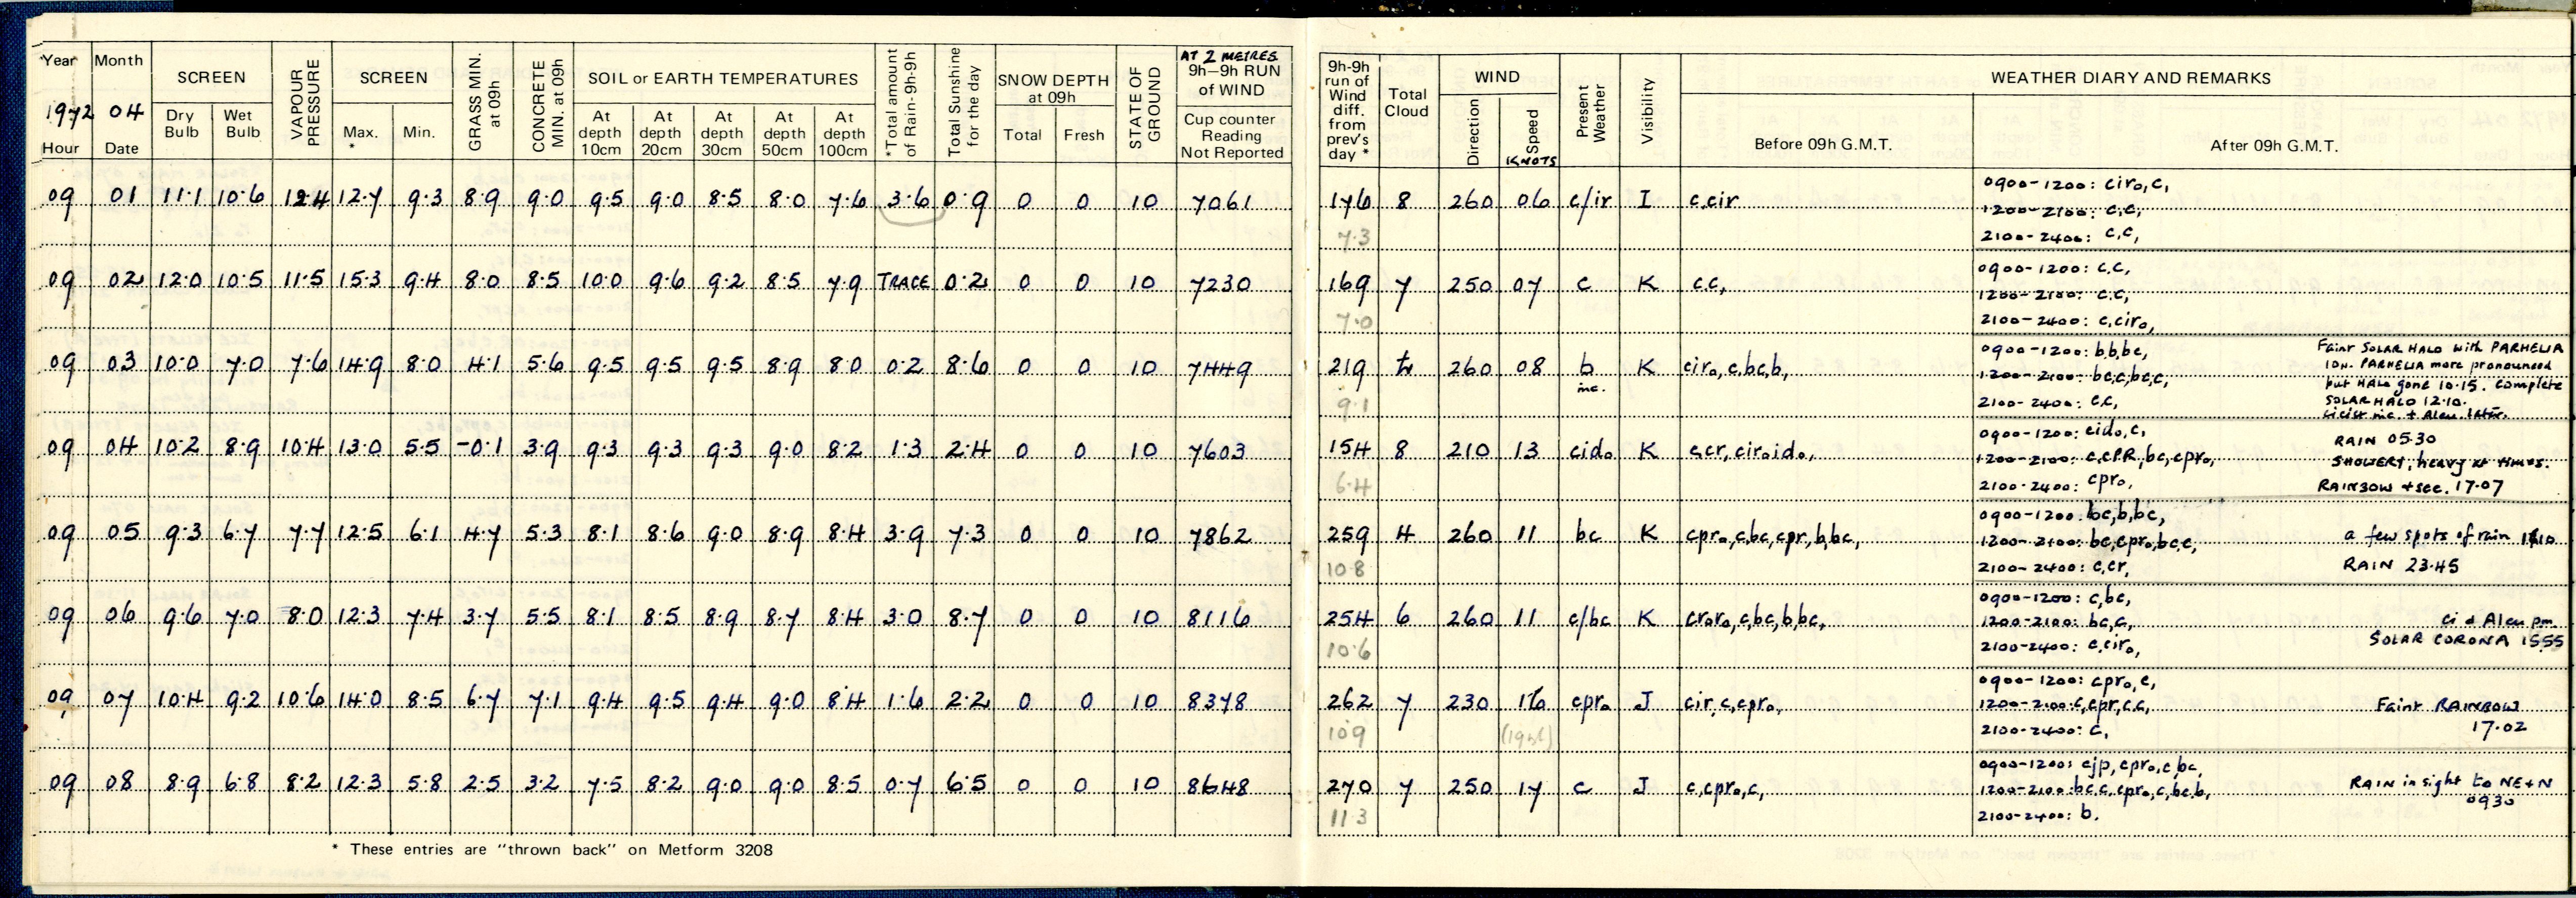 Year Month SCREEN VAPOUR PRESSURE SCREEN GRASS MIN. at 09h CONCRETE MIN. at 09h SOIL or EARTH TEMPERATURES *Total amount of Rain- 9h-9h Total Sunshine for the day SNOW DEPTH at 09h STATE OF GROUND AT 2 METRES 9h—9h RUN of WIND
1972 04 Dry Bulb Wet Bulb Max. * Min. At depth 10cm At depth 20cm At depth 30cm At depth 50cm At depth 100cm Total Fresh Cup counter Reading Not Reported
Hour Date
9h-9h run of Wind diff. from prev's day * Total Cloud WIND Direction Speed KNOTS Present Weather Visibility WEATHER DIARY AND REMARKS
Before 09h G.M.T. After 09h G.M.T.
09 01 11·1 10·6 12·4 12·7 9·3 8·9 9·0 9·5 9·0 8·5 8·0 7·6 3·6 0·9 0 0 10 7061 176 8 260 06 c/ir I c,cir
7·3
0900-1200: ciro,c,
1200-2100: c,c,
2100-2400: c,c,
09 02 12·0 10·5 11·5 15·3 9·4 8·0 8·5 10·0 9·6 9·2 8·5 7·9 TRACE 0·2 0 0 10 7230 169 7 250 07 c K c,c,
7·0
0900-1200: c,c,
1200-2100: c,c,
2100-2400: c,ciro,
09 03 10·0 7·0 7·6 14·9 8·0 4·1 5·6 9·5 9·5 9·5 8·9 8·0 0·2 8·6 0 0 10 7449 219 260 08 b inc. K ciro,c,bc,b,
9·1
0900-1200: b,b,bc,
1200-2100: bc,c,bc,c,
2100-2400: c,c,
Faint SOLAR HALO with PARHELIA
10H. PARHELIA more pronounced
but HALO gone 10·15. Complete
SOLAR HALO 12·10.
cicist inc. + Alcu. later.
09 04 10·2 8·9 10·4 13·0 5·5 -0·1 3·9 9·3 9·3 9·3 9·0 8·2 1·3 2·4 0 0 10 7603 154 8 210 13 cido K c,cr,ciro,ido,
6·4
0900-1200: cido,c,
1200-2100: c,cPR,bc,cpro,
2100-2400: cpro,
RAIN 05·30
SHOWERY, heavy at times.
RAINBOW +sec. 17·07
09 05 9·3 6·7 7·7 12·5 6·1 4·7 5·3 8·1 8·6 9·0 8·9 8·4 3·9 7·3 0 0 10 7862 259 4 260 11 bc K cpro,c,bc,cpr,b,bc,
10·8
0900-1200: bc,b,bc,
1200-2100: bc,cpro,bc,c,
2100-2400: c,cr,
a few spots of rain
RAIN 23·45
09 06 9·6 7·0 8·0 12·3 7·4 3·7 5·5 8·1 8·5 8·9 8·7 8·4 3·0 8·7 0 0 10 8116 254 6 260 11 c/bc K croro,c,bc,b,bc,
10·6
0900-1200: c,bc,
1200-2100: bc,c,
2100-2400: c,ciro,
ci & Alcu pm.
SOLAR CORONA 15.55
09 07 10·4 9·2 10·6 14·0 8·5 6·7 7·1 9·4 9·5 9·4 9·0 8·4 1·6 2·2 0 0 10 8378 262 7 230 16 cpro J cir,c,cpro,
10·9
0900-1200: cpro,c,
1200-2100: c,cpr,c,c,
2100-2400: c,
Faint RAINBOW
17·02
09 08 8·9 6·8 8·2 12·3 5·8 2·5 3·2 7·5 8·2 9·0 9·0 8·5 0·7 6·5 0 0 10 8648 270 7 250 17 c J c,cpro,c,
11·3
0900-1200: cjp,cpro,c,bc,
1200-2100: bc,c,cpro,c,bc,b,
2100-2400: b.
RAIN in sight to NE+N
0930
* These entries are "thrown back" on Metform 3208